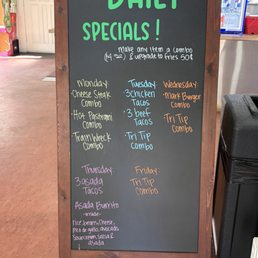 DAILY
SPECIALS!
make any item a combo
& upgrade to fries 50¢
Monday
Cheese Steak
Combo
Hot Pastrami
Combo
Train Wreck
Combo
Tuesday
3 chicken
Tacos
3 beef
Tacos
Tri Tip
Combo
Wednesday
Mark Burger
Combo
Tri Tip
Combo
Thursday
3 asada
Tacos
Asada Burrito
Rice, beans, Cheese,
Pico de gallo, avocado,
Sour cream, Salsa &
asada
Friday
Tri Tip
Combo